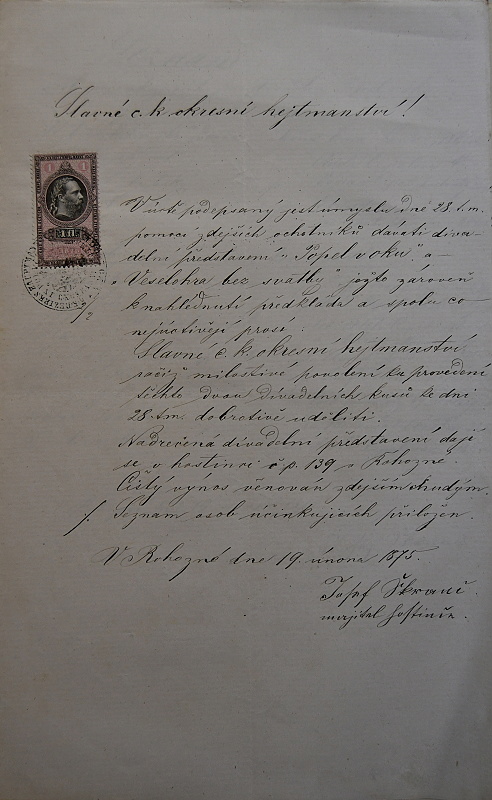 Slavné c. k. okresní hejtmanství!
1 1
V úctě podepsaný jest úmyslu dné 28. t. m.
pomocí zdejších ochotníků dávati diva-
delní představení „Popel v oku" a
„Veselohra bez svatby" ježto zároveň
k nahlédnutí předkládá a spolu co
nejuctivěji prosí:
Slavné c. k. okresní hejtmanství
račiž milostivé povolení ku provedení
těchto dvou divadelních kusů ke dni
28. t. m. dobrotivě uděliti.
Nadřečená divadelní představení dají
se v hostinci č p. 139 v Rohozné.
Čistý výnos věnován zdejším chudým.
/. Seznam osob účinkujících přiložen.
V Rohozné dne 19. února 1875.
Josef
majitel hostince.